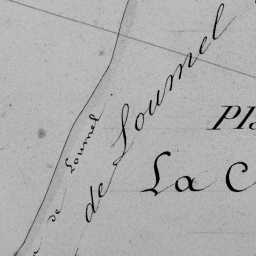 de Loumel
de Loumel
Pl
La C